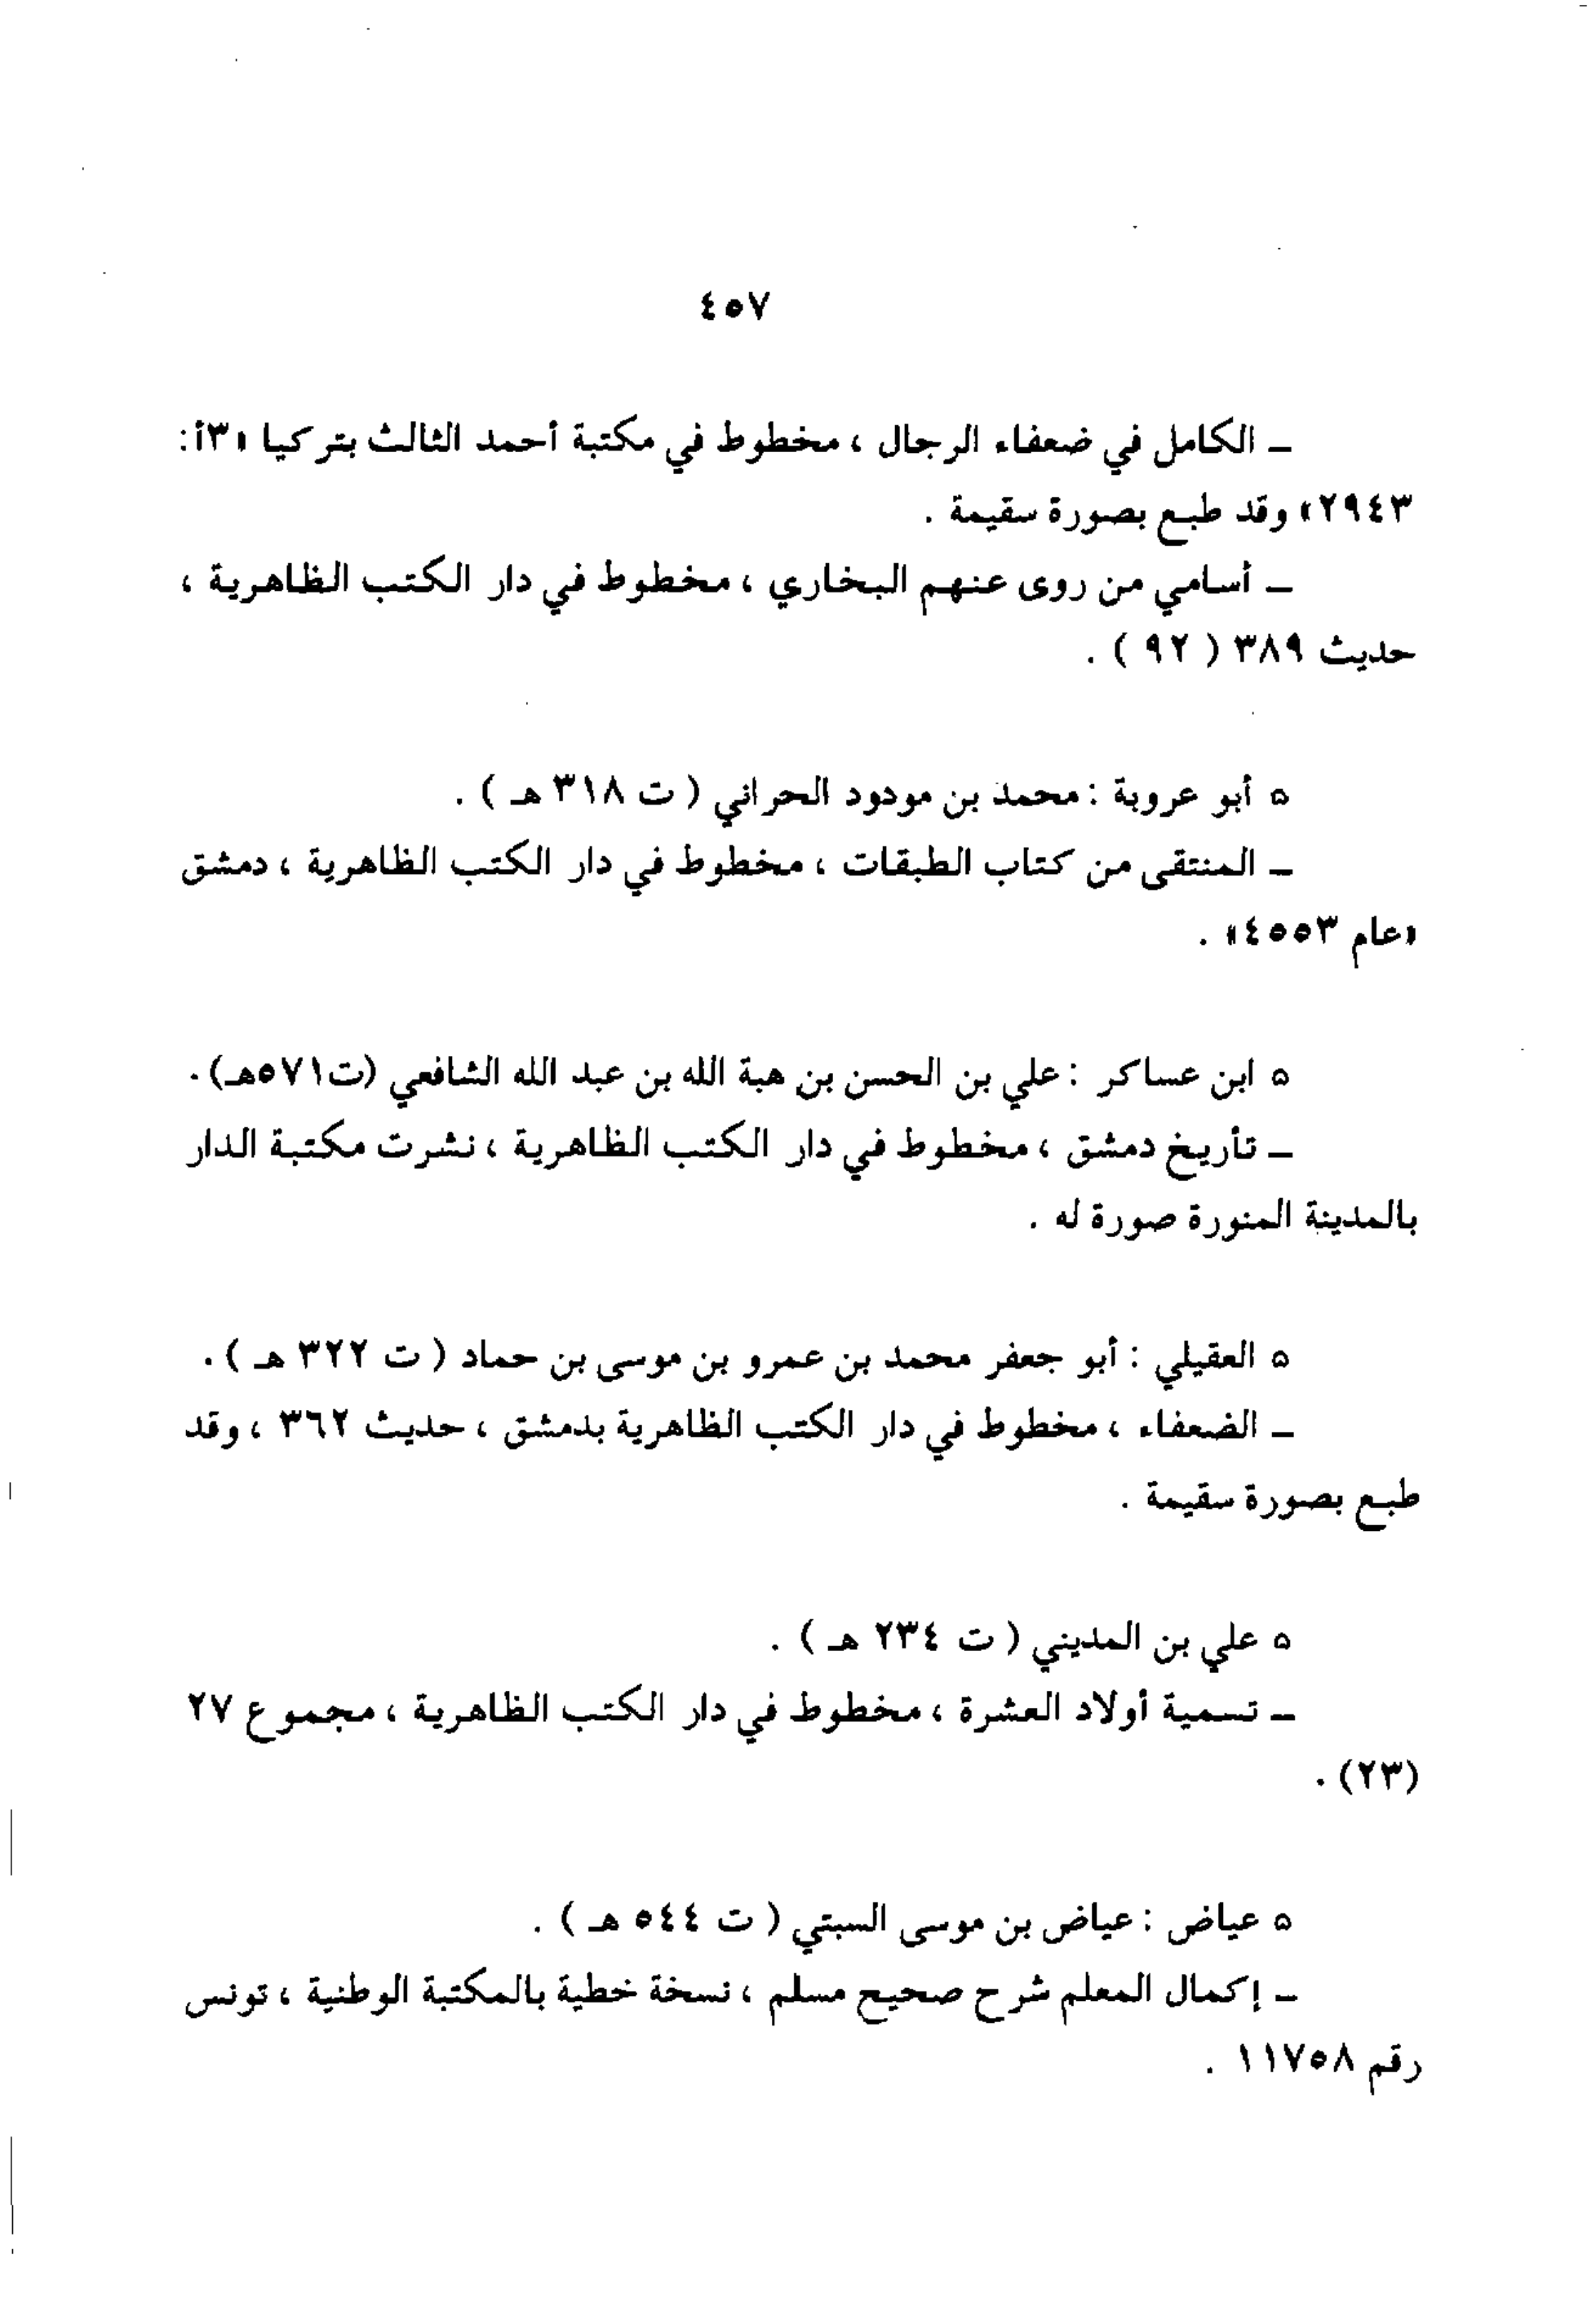 ٤٥٧
ـ الكامل في ضعفاء الرجال ، مخطوط في مكتبة أحمد الثالث بتركيا «٣أ:
٢٩٤٣» وقد طبع بصورة سقيمة .
ـ أسامي من روى عنهم البخاري ، مخطوط في دار الكتب الظاهرية ،
حديث ٣٨٩ ( ٩٢ ) .
٥ أبو عروبة : محمد بن مودود الحراني ( ت ٣١٨ هـ ) .
ـ المنتقى من كتاب الطبقات ، مخطوط في دار الكتب الظاهرية ، دمشق
«عام ٤٥٥٣» .
٥ ابن عساكر : علي بن الحسن بن هبة الله بن عبد الله الشافعي (ت٥٧١هـ) .
ـ تأريخ دمشق ، مخطوط في دار الكتب الظاهرية ، نشرت مكتبة الدار
بالمدينة المنورة صورة له .
٥ العقيلي : أبو جعفر محمد بن عمرو بن موسى بن حماد ( ت ٣٢٢ هـ ) .
ـ الضعفاء ، مخطوط في دار الكتب الظاهرية بدمشق ، حديث ٣٦٢ ، وقد
طبع بصورة سقيمة .
٥ علي بن المديني ( ت ٢٣٤ هـ ) .
ـ تسمية أولاد العشرة ، مخطوط في دار الكتب الظاهرية ، مجموع ٢٧
(٢٣) .
٥ عياض : عياض بن موسى السبتي ( ت ٥٤٤ هـ ) .
ـ إكمال المعلم شرح صحيح مسلم ، نسخة خطية بالمكتبة الوطنية ، تونس
رقم ١١٧٥٨ .